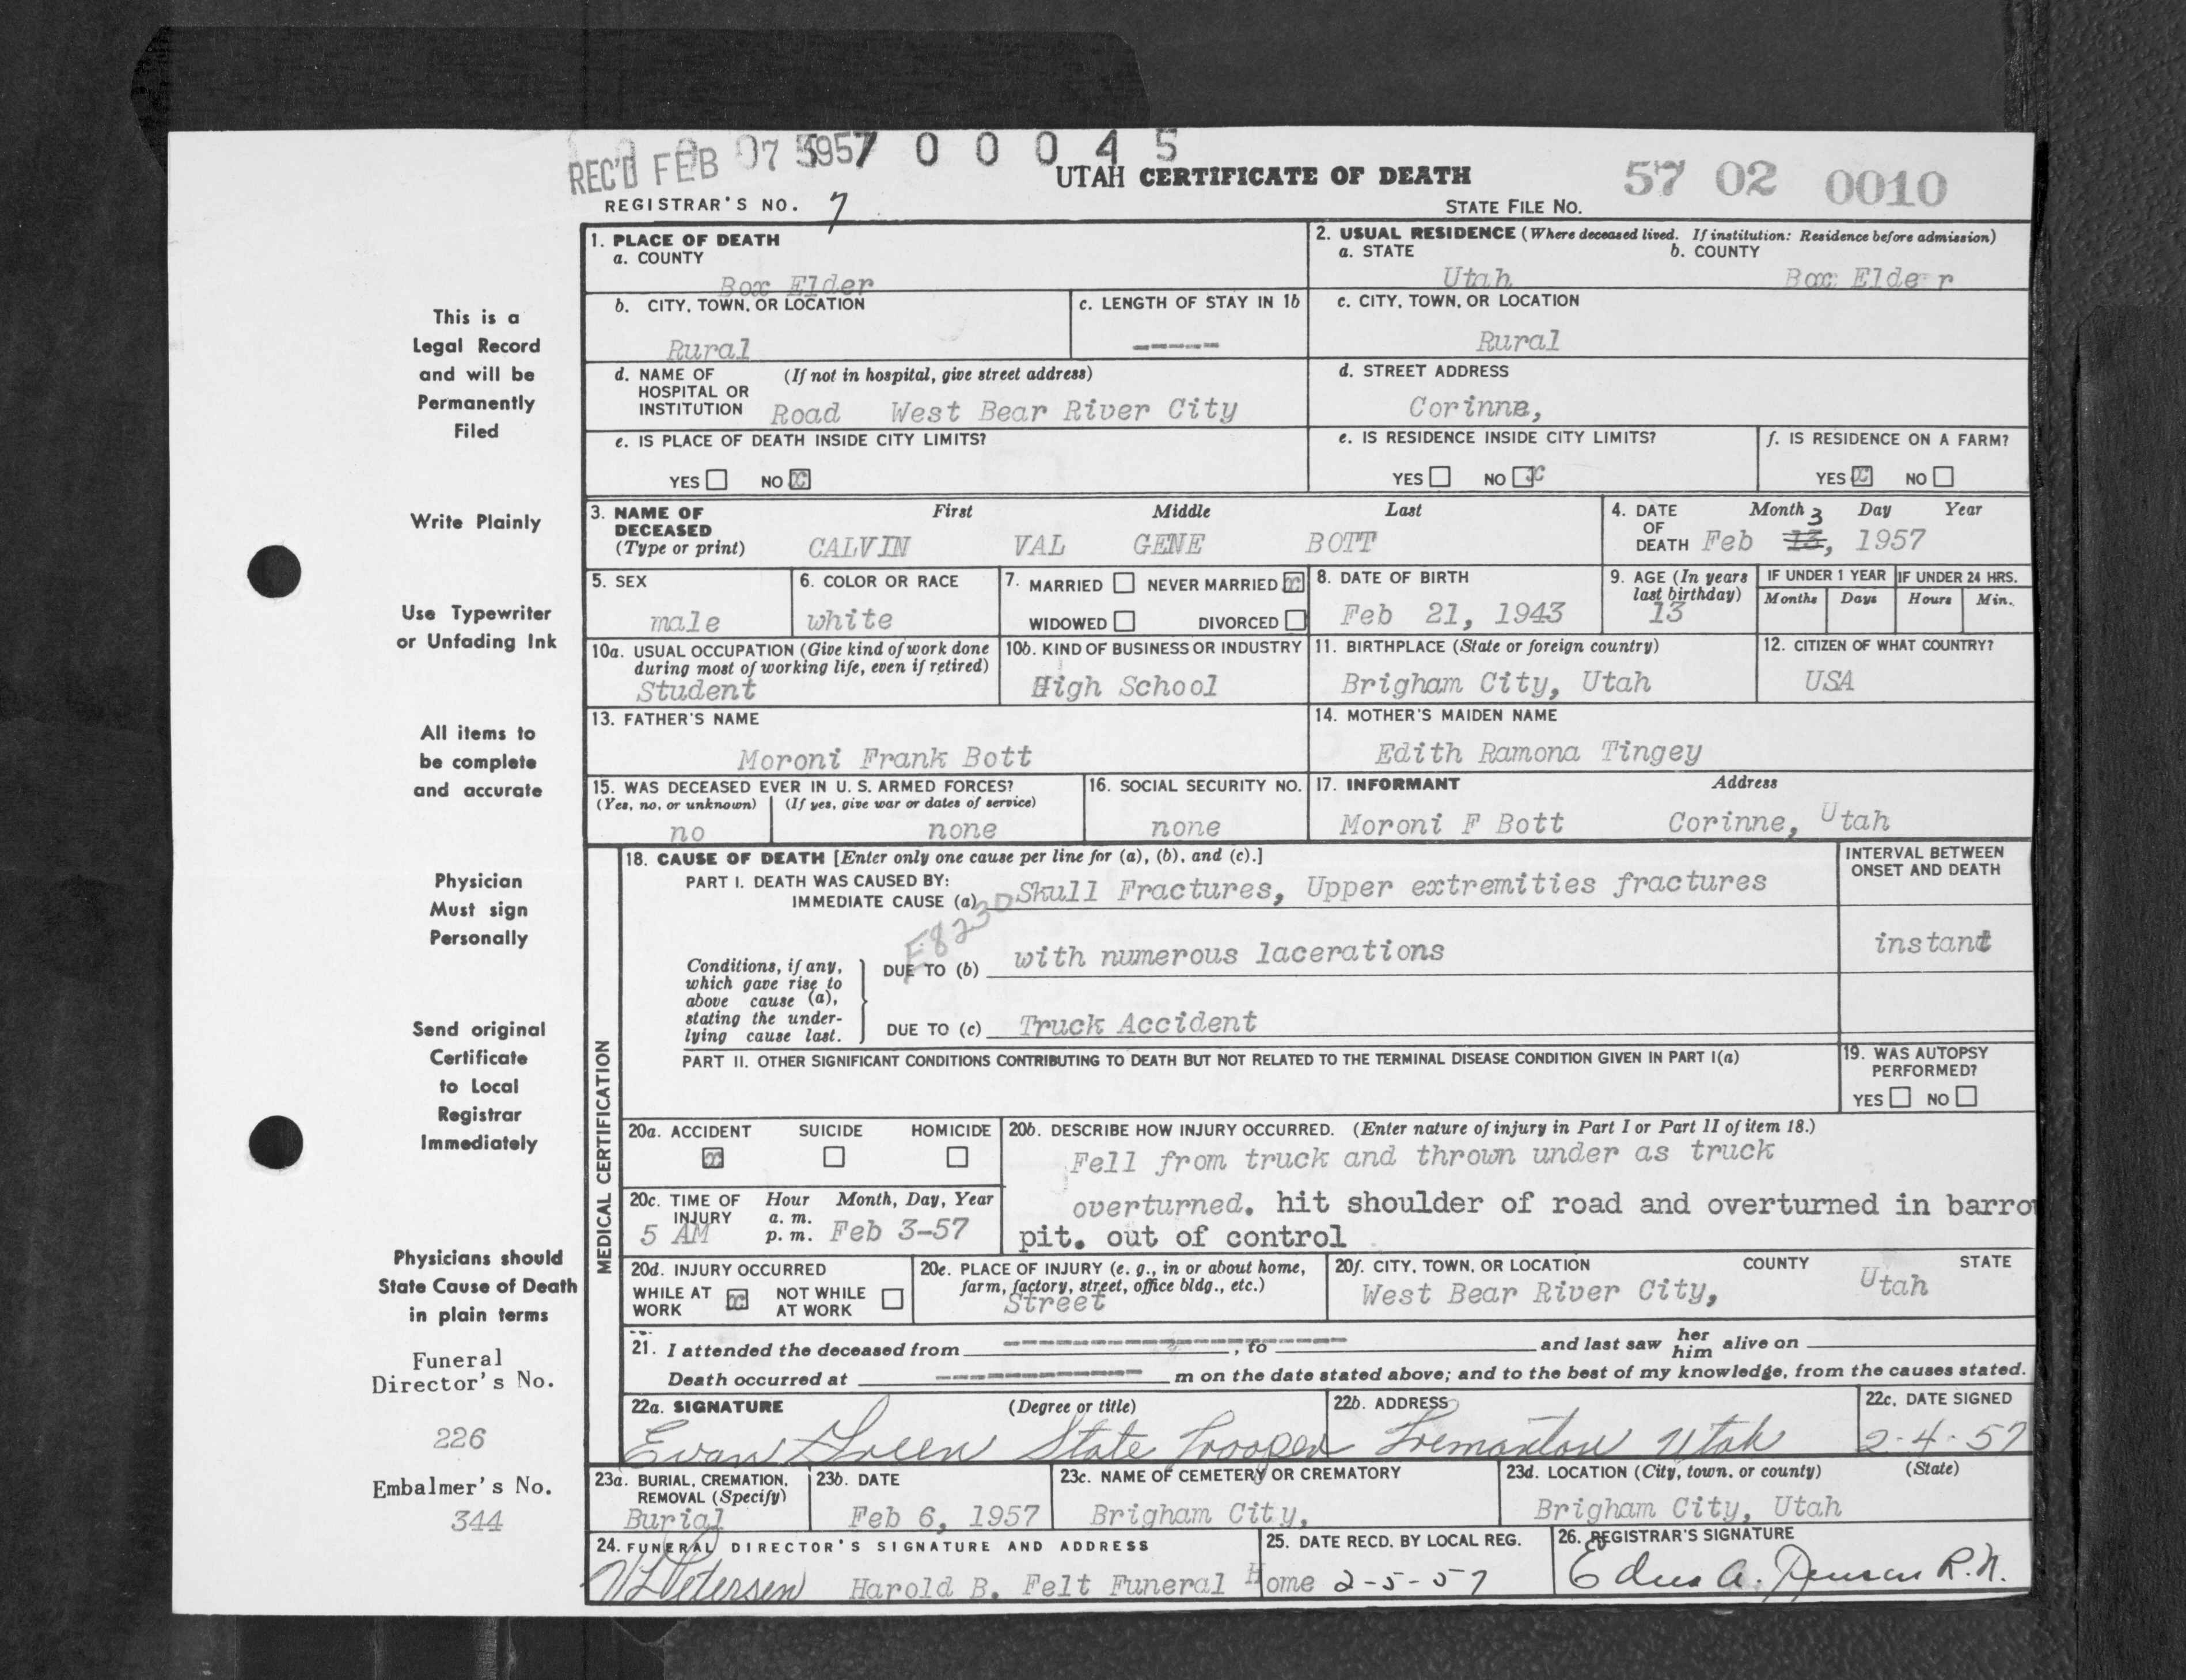 REC'D FEB 07 1957 0 0 0 4 5
UTAH CERTIFICATE OF DEATH
57 02 0010
REGISTRAR'S NO. 7
STATE FILE NO.
1. PLACE OF DEATH
a. COUNTY
Box Elder
2. USUAL RESIDENCE (Where deceased lived. If institution: Residence before admission)
a. STATE b. COUNTY
Utah Box Elder
b. CITY, TOWN, OR LOCATION
Rural
c. LENGTH OF STAY IN 1b
-----
c. CITY, TOWN, OR LOCATION
Rural
d. NAME OF (If not in hospital, give street address)
HOSPITAL OR
INSTITUTION Road West Bear River City
d. STREET ADDRESS
Corinne,
e. IS PLACE OF DEATH INSIDE CITY LIMITS?
YES NO x
e. IS RESIDENCE INSIDE CITY LIMITS?
YES NO x
f. IS RESIDENCE ON A FARM?
YES x NO
3. NAME OF First Middle Last
DECEASED
(Type or print) CALVIN VAL GENE BOTT
4. DATE Month Day Year
OF 3
DEATH Feb 13, 1957
5. SEX
male
6. COLOR OR RACE
white
7. MARRIED NEVER MARRIED x
WIDOWED DIVORCED
8. DATE OF BIRTH
Feb 21, 1943
9. AGE (In years
last birthday)
13
IF UNDER 1 YEAR IF UNDER 24 HRS.
Months Days Hours Min.
10a. USUAL OCCUPATION (Give kind of work done
during most of working life, even if retired)
Student
10b. KIND OF BUSINESS OR INDUSTRY
High School
11. BIRTHPLACE (State or foreign country)
Brigham City, Utah
12. CITIZEN OF WHAT COUNTRY?
USA
13. FATHER'S NAME
Moroni Frank Bott
14. MOTHER'S MAIDEN NAME
Edith Ramona Tingey
15. WAS DECEASED EVER IN U. S. ARMED FORCES?
(Yes, no, or unknown) (If yes, give war or dates of service)
no none
16. SOCIAL SECURITY NO.
none
17. INFORMANT Address
Moroni F Bott Corinne, Utah
MEDICAL CERTIFICATION
18. CAUSE OF DEATH [Enter only one cause per line for (a), (b), and (c).]
PART I. DEATH WAS CAUSED BY:
IMMEDIATE CAUSE (a) Skull Fractures, Upper extremities fractures
E823D
INTERVAL BETWEEN
ONSET AND DEATH
instant
Conditions, if any,
which gave rise to
above cause (a),
stating the under-
lying cause last.
DUE TO (b) with numerous lacerations
DUE TO (c) Truck Accident
PART II. OTHER SIGNIFICANT CONDITIONS CONTRIBUTING TO DEATH BUT NOT RELATED TO THE TERMINAL DISEASE CONDITION GIVEN IN PART I(a)
19. WAS AUTOPSY
PERFORMED?
YES NO
20a. ACCIDENT SUICIDE HOMICIDE
x
20b. DESCRIBE HOW INJURY OCCURRED. (Enter nature of injury in Part I or Part II of item 18.)
Fell from truck and thrown under as truck
overturned. hit shoulder of road and overturned in barro
pit. out of control
20c. TIME OF Hour Month, Day, Year
INJURY a. m.
5 AM p. m. Feb 3-57
20d. INJURY OCCURRED
WHILE AT WORK x NOT WHILE AT WORK
20e. PLACE OF INJURY (e. g., in or about home,
farm, factory, street, office bldg., etc.)
Street
20f. CITY, TOWN, OR LOCATION COUNTY STATE
West Bear River City, Utah
21. I attended the deceased from ----------, to ------ and last saw her him alive on
Death occurred at ---------- m on the date stated above; and to the best of my knowledge, from the causes stated.
22a. SIGNATURE (Degree or title)
Evan Green State Trooper
22b. ADDRESS
Tremonton Utah
22c. DATE SIGNED
2-4-57
23a. BURIAL, CREMATION,
REMOVAL (Specify)
Burial
23b. DATE
Feb 6, 1957
23c. NAME OF CEMETERY OR CREMATORY
Brigham City,
23d. LOCATION (City, town, or county) (State)
Brigham City, Utah
24. FUNERAL DIRECTOR'S SIGNATURE AND ADDRESS
Petersen Harold B. Felt Funeral Home
25. DATE RECD. BY LOCAL REG.
2-5-57
26. REGISTRAR'S SIGNATURE
A. R.N.
This is a
Legal Record
and will be
Permanently
Filed
Write Plainly
Use Typewriter
or Unfading Ink
All items to
be complete
and accurate
Physician
Must sign
Personally
Send original
Certificate
to Local
Registrar
Immediately
Physicians should
State Cause of Death
in plain terms
Funeral
Director's No.
226
Embalmer's No.
344